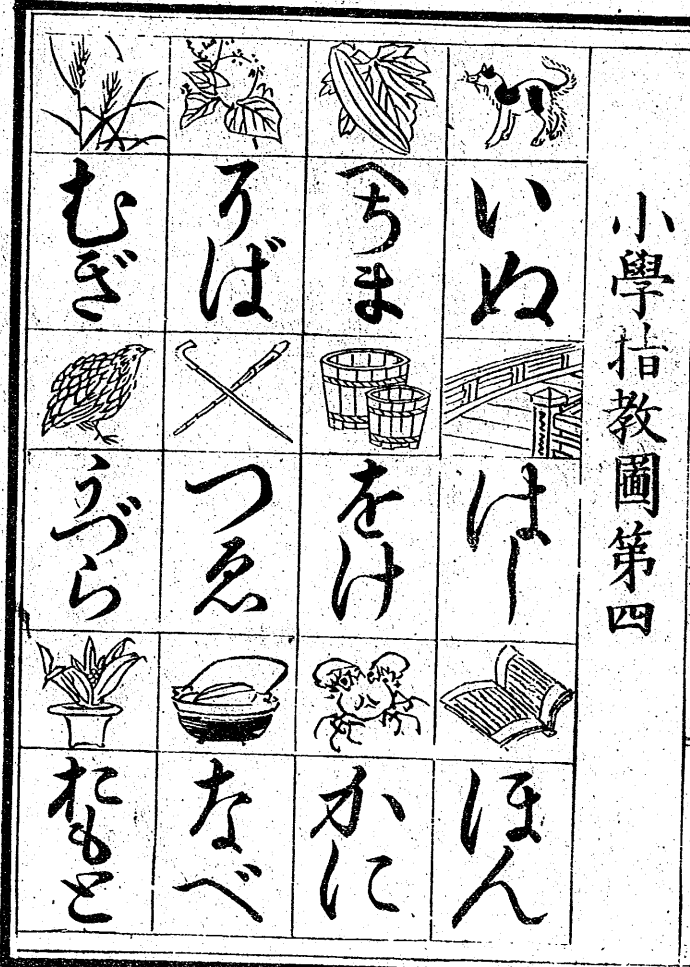 小學指教圖第四
いぬ
はし
ほん
へちま
をけ
かに
そば
つゑ
なべ
むぎ
うづら
おもと